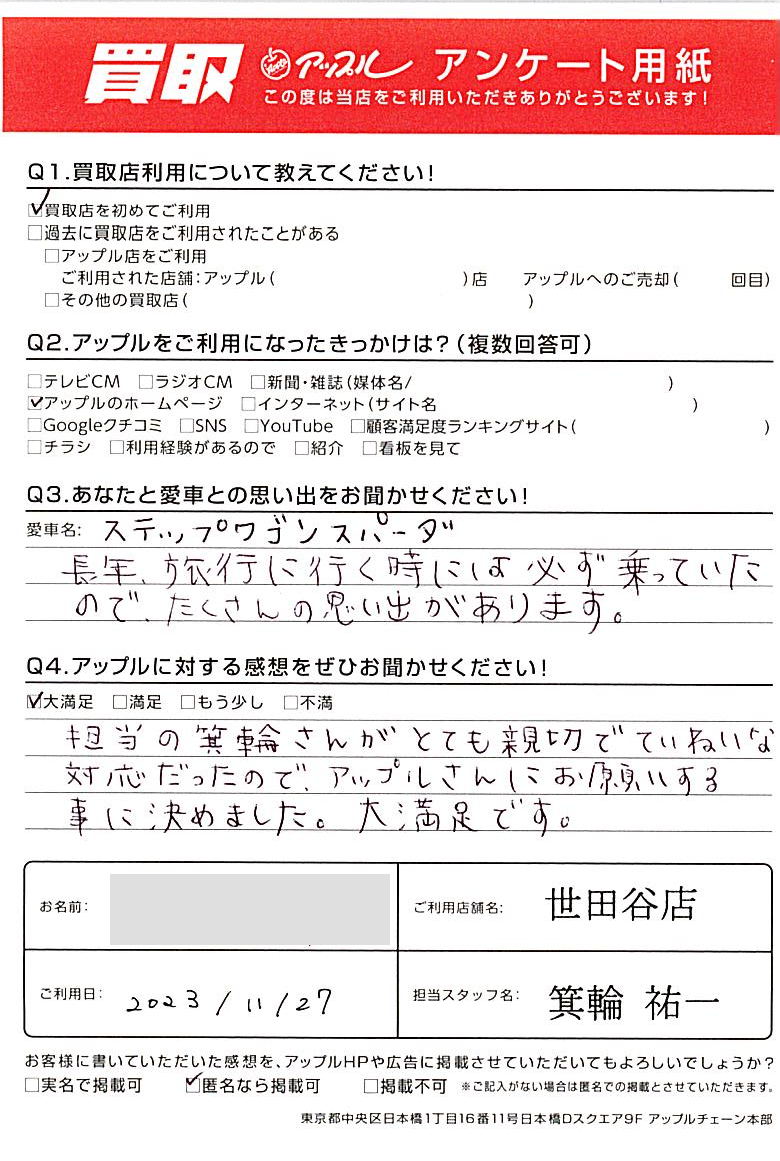 買取 アップル アンケート用紙
この度は当店をご利用いただきありがとうございます!
Q1.買取店利用について教えてください!
☑買取店を初めてご利用
□過去に買取店をご利用されたことがある
□アップル店をご利用
ご利用された店舗:アップル( )店 アップルへのご売却( 回目)
□その他の買取店( )
Q2.アップルをご利用になったきっかけは?(複数回答可)
□テレビCM □ラジオCM □新聞・雑誌(媒体名/ )
☑アップルのホームページ □インターネット(サイト名 )
□Googleクチコミ □SNS □YouTube □顧客満足度ランキングサイト( )
□チラシ □利用経験があるので □紹介 □看板を見て
Q3.あなたと愛車との思い出をお聞かせください!
愛車名: ステップワゴンスパーダ
長年、旅行に行く時には必ず乗っていた
ので、たくさんの思い出があります。
Q4.アップルに対する感想をぜひお聞かせください!
☑大満足 □満足 □もう少し □不満
担当の箕輪さんがとても親切でていねいな
対応だったので、アップルさんにお願いする
事に決めました。大満足です。
お名前:
ご利用店舗名: 世田谷店
ご利用日: 2023/11/27
担当スタッフ名: 箕輪 祐一
お客様に書いていただいた感想を、アップルHPや広告に掲載させていただいてもよろしいでしょうか?
□実名で掲載可 ☑匿名なら掲載可 □掲載不可 ※ご記入がない場合は匿名での掲載とさせていただきます。
東京都中央区日本橋1丁目16番11号日本橋Dスクエア9F アップルチェーン本部